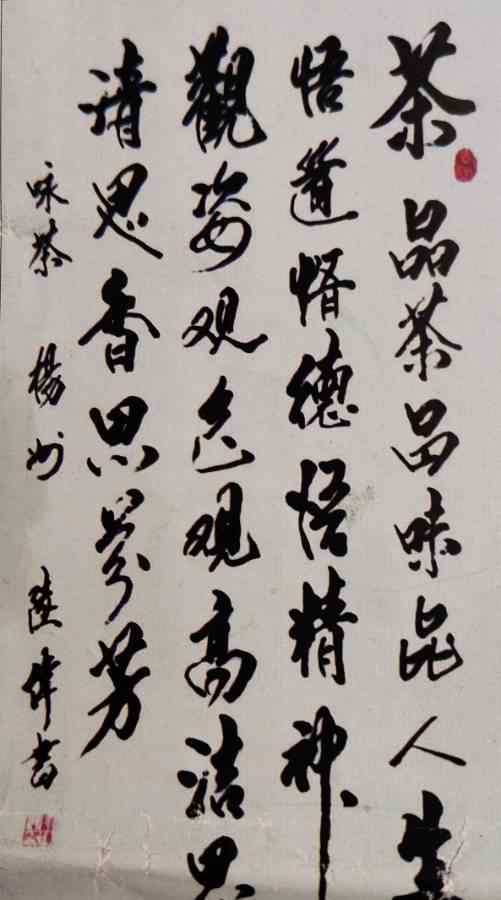 茶 品茶品味品人生
悟道悟德悟精神
觀姿观色观高洁思
清思香思芬芳
咏茶 楊州 偉書